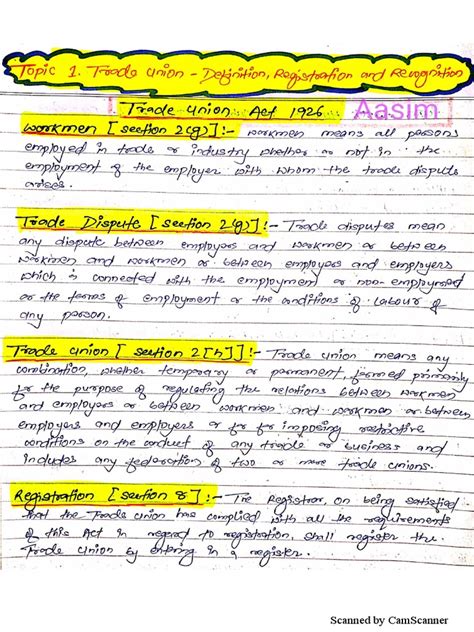 Topic 1. Trade Union - Definition, Registration and Recognition
Trade Union Act 1926 Aasim
workmen [section 2(g)] :- workmen means all persons
employed in trade or industry whether or not in the
employment of the employer with whom the trade dispute
arises.
Trade Dispute [section 2(g)] :- Trade disputes mean
any dispute between employers and workmen or between
workmen and workmen or between employers and employers
which is connected with the employment or non-employment
or the terms of employment or the conditions of labour of
any person.
Trade union [section 2[h]] :- Trade union means any
combination, whether temporary or permanent, formed primarily
for the purpose of regulating the relations between workmen
and employers or between workmen and workmen or between
employers and employers or for for imposing restrictive
conditions on the conduct of any trade or business and
includes any federation of two or more trade unions.
Registration [section 8] :- The Registrar, on being satisfied
that the Trade union has complied with all the requirements
of this Act in regard to registration, shall register the
Trade Union by entering in a register.
Scanned by CamScanner